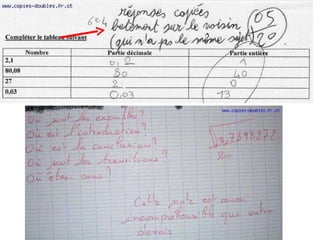 www.copies-doubles.fr.st
6e4
réponses copiées
bêtement sur le voisin
(qui n'a pas le même sujet)
05
20
Compléter le tableau suivant
Nombre Partie décimale Partie entière
2,1 0,2 1
80,08 80 40
27 2 0
0,03 0,03 -13
www.copies-doubles.fr.st
Où sont les exemples?
Où est l'introduction?
Où est la conclusion?
Où sont les transitions?
Où êtes-vous?
√3,7893272
20
Cette note est aussi
incompréhensible que votre
devoir